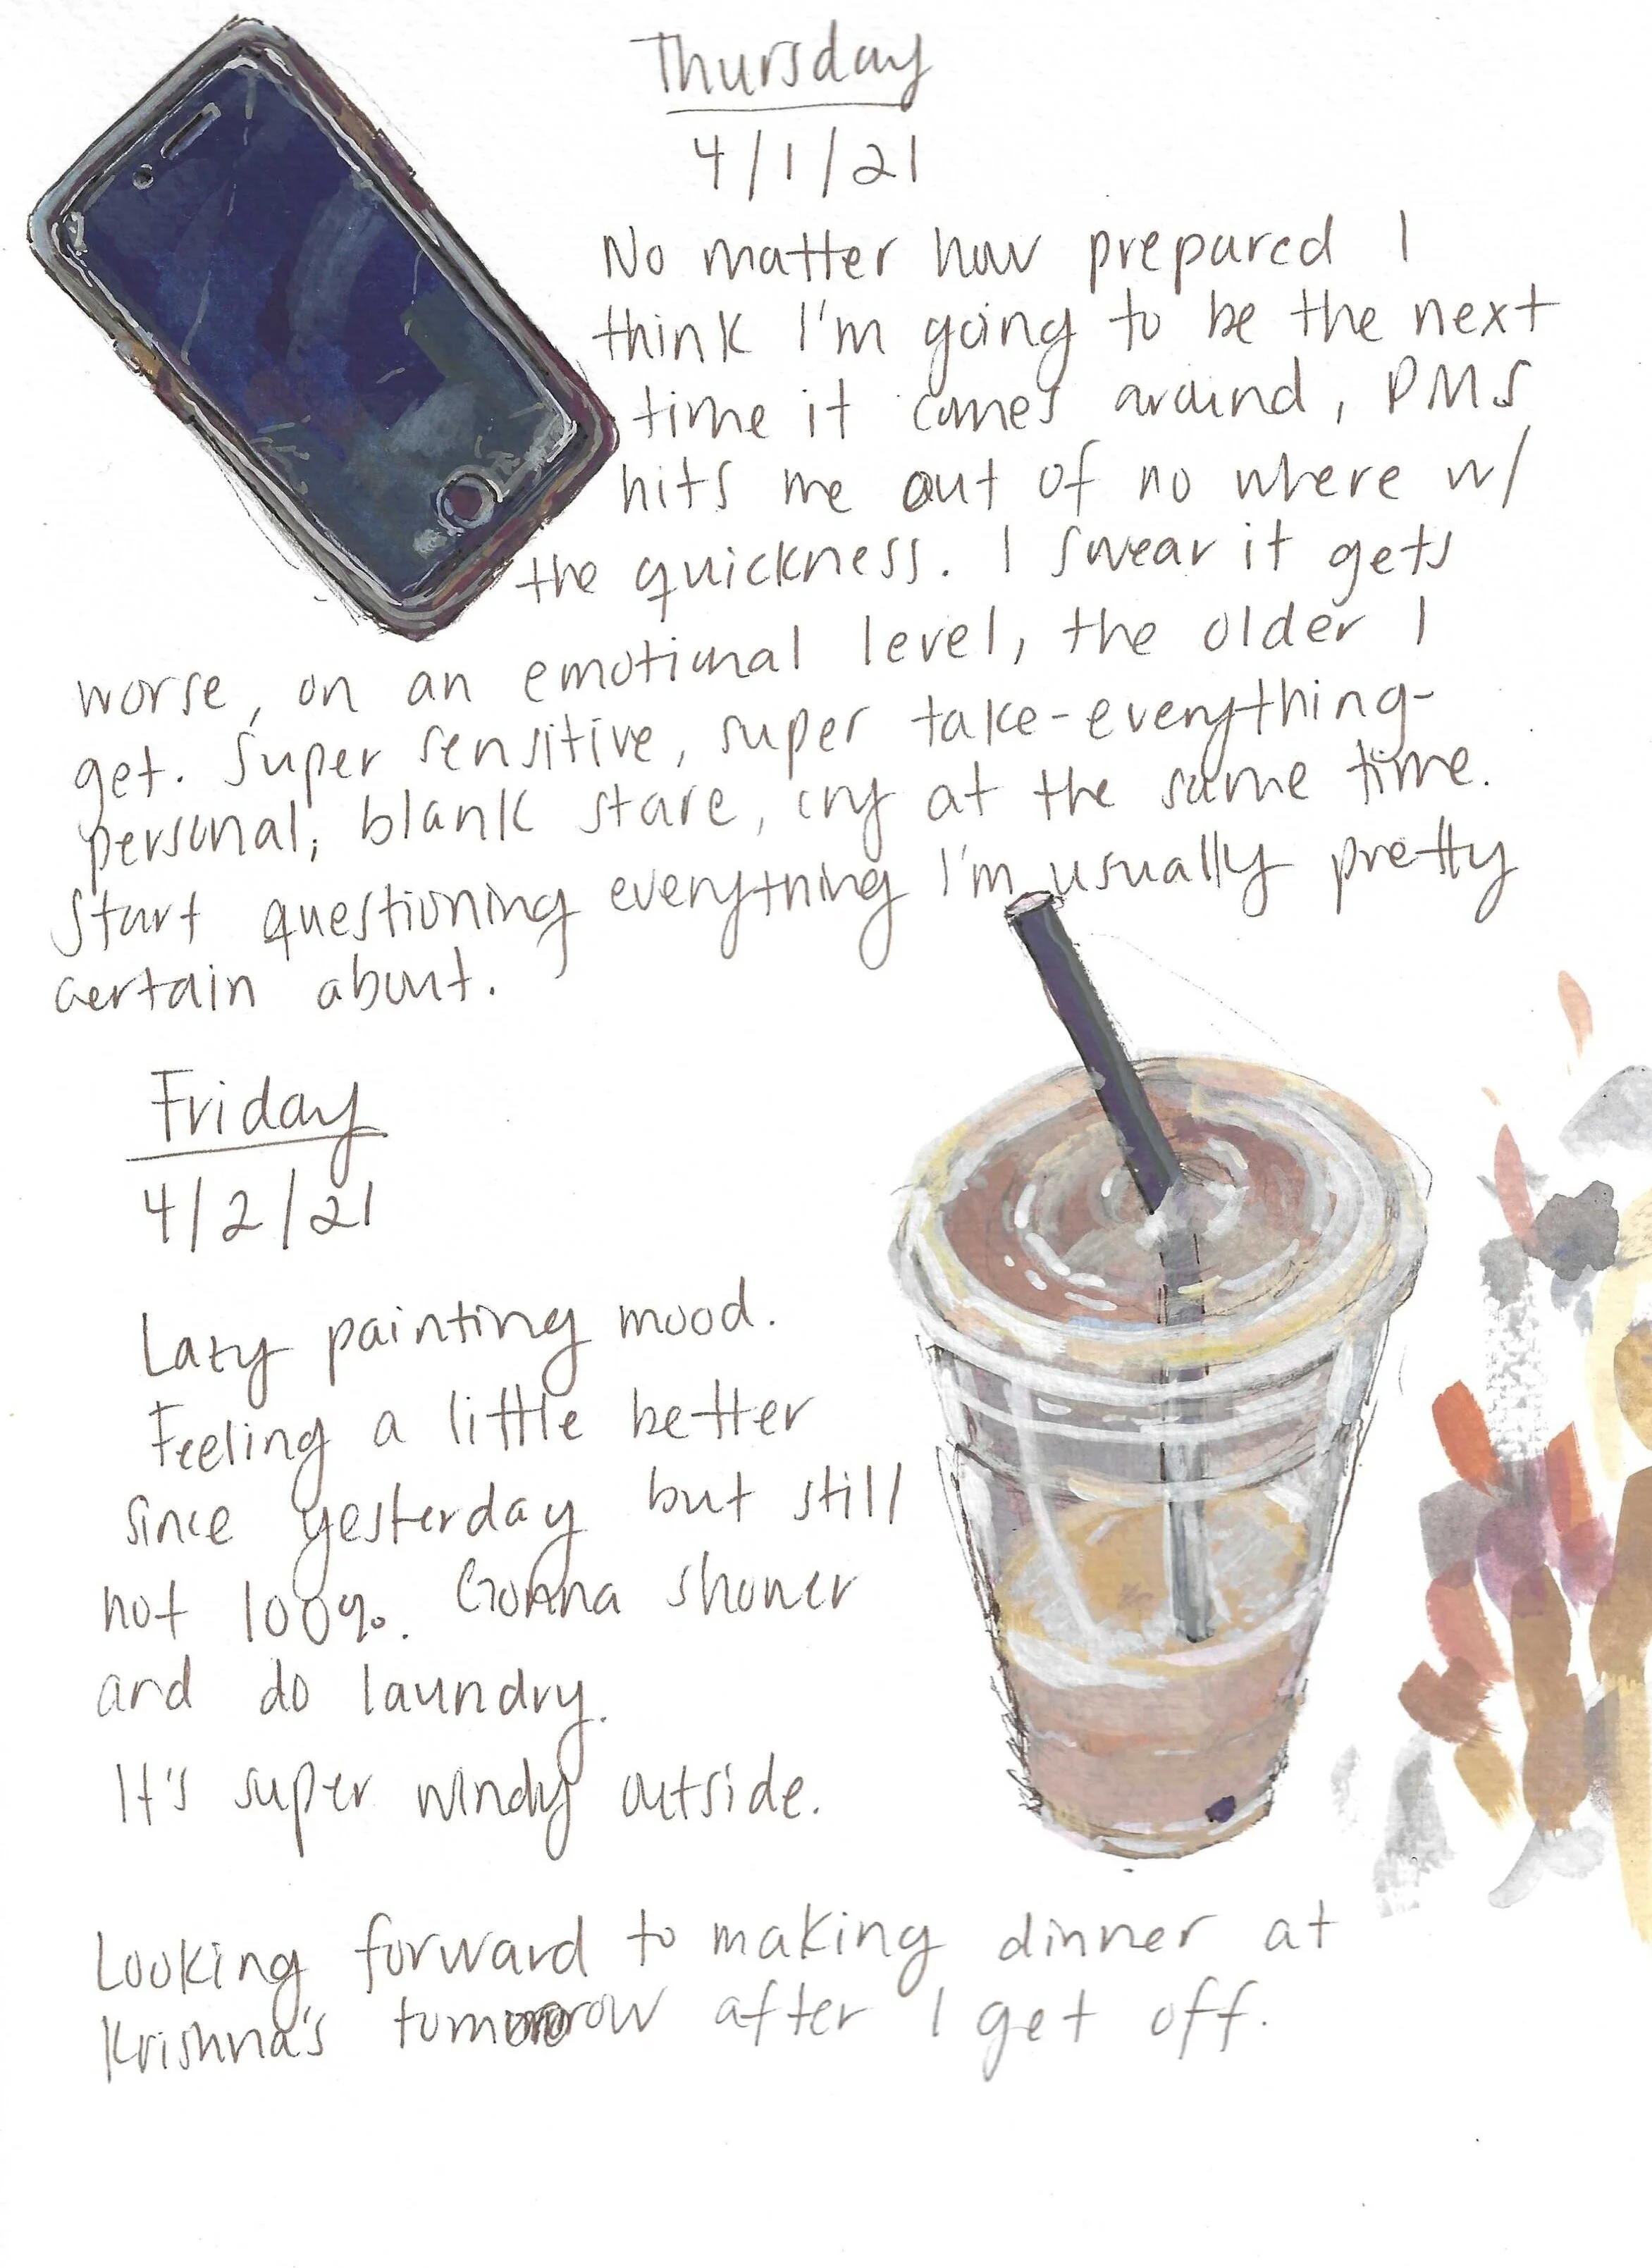 Thursday
4/1/21
No matter how prepared I
think I'm going to be the next
time it comes around, PMS
hits me out of no where w/
the quickness. I swear it gets
worse, on an emotional level, the older I
get. Super sensitive, super take-everything-
personal, blank stare, cry at the same time.
Start questioning everything I'm usually pretty
certain about.
Friday
4/2/21
Lazy painting mood.
Feeling a little better
since yesterday but still
not 100%. Gonna shower
and do laundry.
It's super windy outside.
Looking forward to making dinner at
Krishna's tomorrow after I get off.